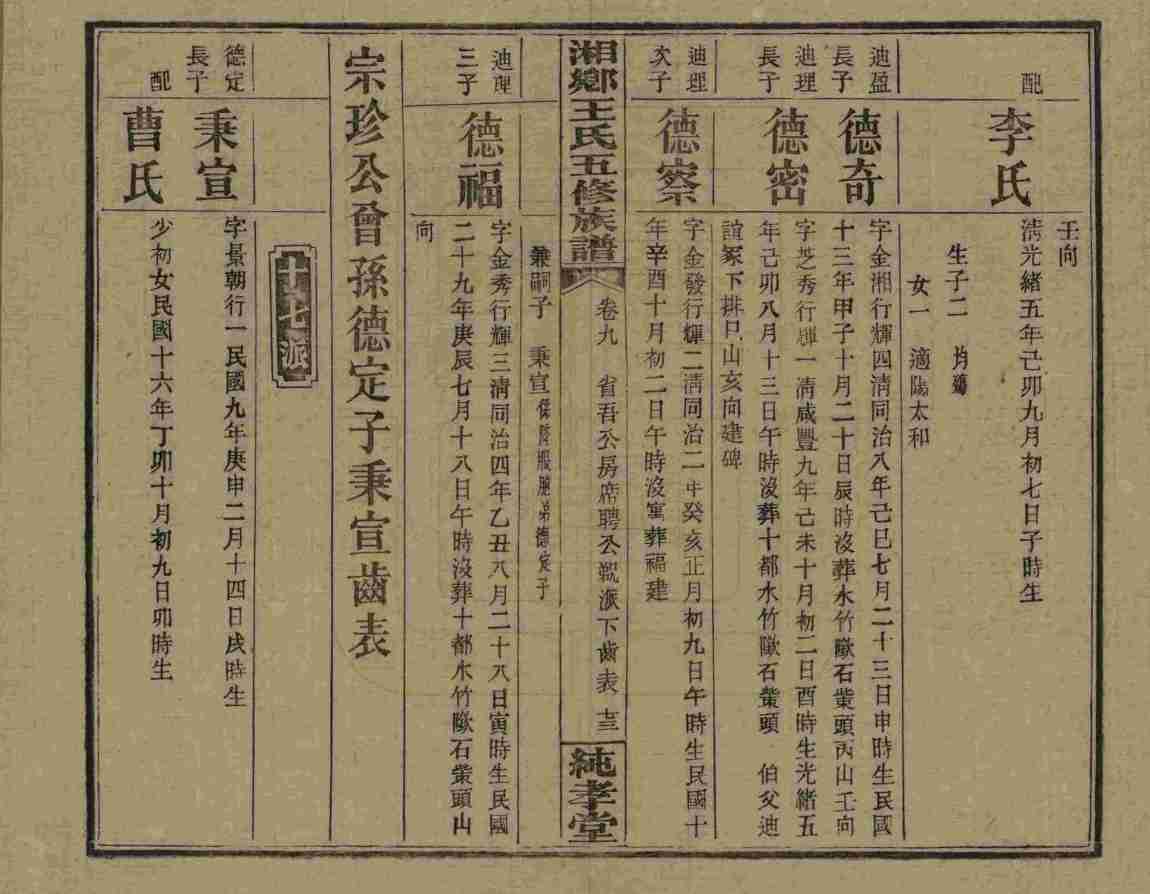 壬向
配
李氏
淸光緖五年己卯九月初七日子時生
生子二 均殤
女一 適陽太和
迪盈
長子
德奇
字金湘行輝四淸同治八年己巳七月二十三日申時生民國
十三年甲子十月二十日辰時沒葬水竹㘵石業頭丙山壬向
迪理
長子
德密
字芝秀行輝一淸咸豐九年己未十月初二日酉時生光緖五
年己卯八月十三日午時沒葬十都水竹㘵石業頭 伯父迪
誼冢下排巳山亥向建碑
迪理
次子
德察
字金發行輝二淸同治二年癸亥正月初九日午時生民國十
年辛酉十月初二日午時沒寓葬福建
湘鄕王氏五修族譜
卷九 省吾公房席聘公派下齒表 十三
純孝堂
兼嗣子 秉宣 胞弟德定子
迪理
三子
德福
字金秀行輝三淸同治四年乙丑八月二十八日寅時生民國
二十九年庚辰七月十八日午時沒葬十都水竹㘵石業頭山
向
宗珍公曾孫德定子秉宣齒表
派
德定
長子
秉宣
字景朝行一民國九年庚申二月十四日戌時生
配
曹氏
少初女民國十六年丁卯十月初九日卯時生